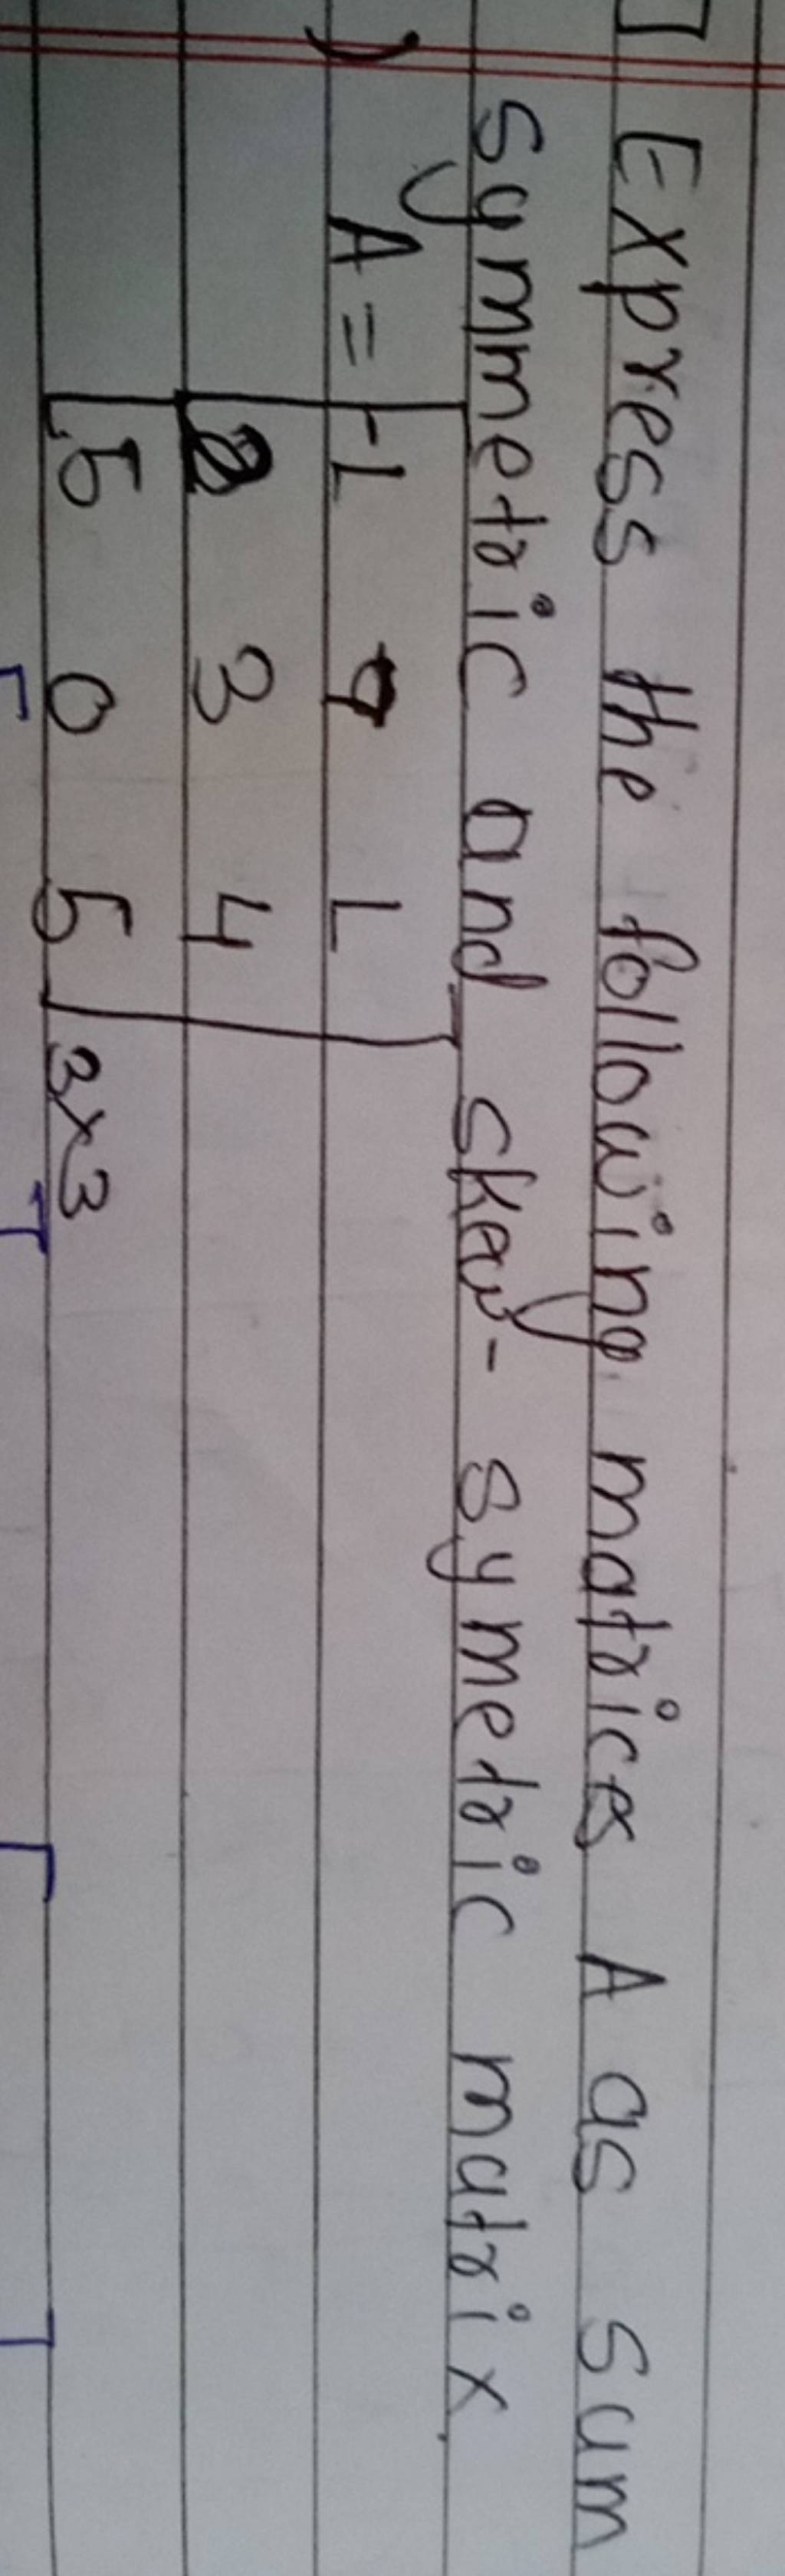 Express the following matrices A as sum
symmetric and skew- symetric matrix.
) A = [ -1 7 1
2 3 4
5 0 5 ] 3×3